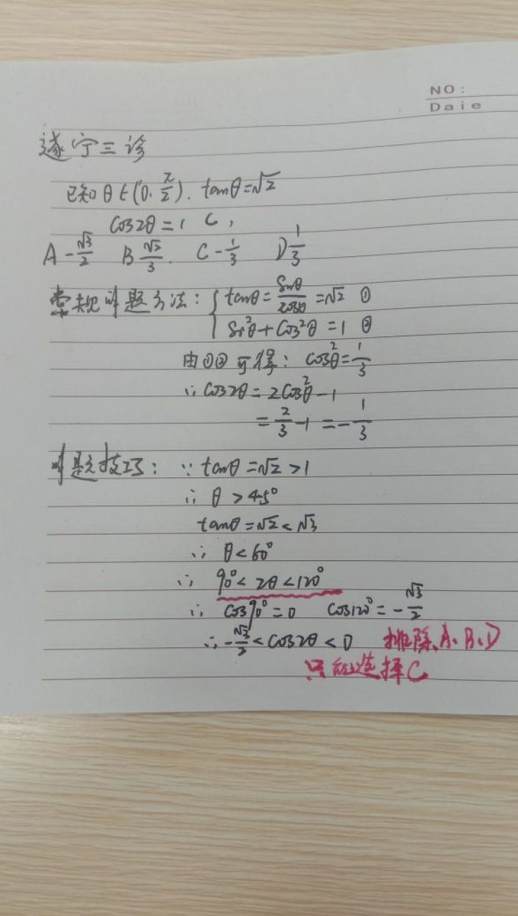 NO:
Date
遂宁三诊
已知θ∈(0, π/2). tanθ=√2
cos2θ=( C ,
A -√3/2 B √2/3. C -1/3 D 1/3
常规解题方法: { tanθ=sinθ/cosθ=√2 ①
sin²θ+cos²θ=1 ②
由①②可得: cos²θ=1/3
∴ cos2θ=2cos²θ-1
=2/3-1=-1/3
解题技巧: ∵ tanθ=√2>1
∴ θ>45°
tanθ=√2<√3
∴ θ<60°
∴ 90°<2θ<120°
∴ cos90°=0 cos120°=-√3/2
∴ -√3/2<cos2θ<0 排除A、B、D
只能选择C